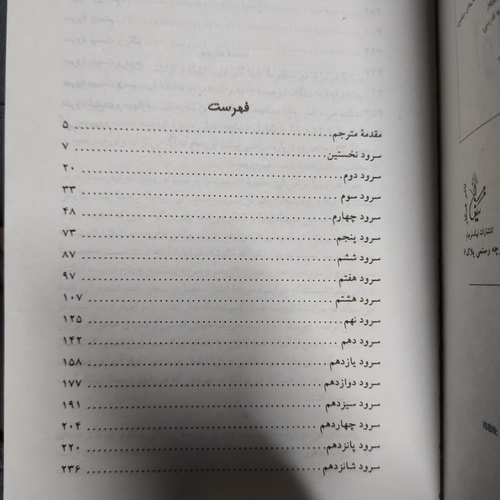 فهرست
مقدمهٔ مترجم ........ ۵
سرود نخستین ........ ۷
سرود دوم ........ ۲۰
سرود سوم ........ ۳۳
سرود چهارم ........ ۴۸
سرود پنجم ........ ۷۳
سرود ششم ........ ۸۷
سرود هفتم ........ ۹۷
سرود هشتم ........ ۱۰۷
سرود نهم ........ ۱۲۵
سرود دهم ........ ۱۴۲
سرود یازدهم ........ ۱۵۸
سرود دوازدهم ........ ۱۷۷
سرود سیزدهم ........ ۱۹۱
سرود چهاردهم ........ ۲۰۴
سرود پانزدهم ........ ۲۲۰
سرود شانزدهم ........ ۲۳۶
انتشارات
پلاک ۶